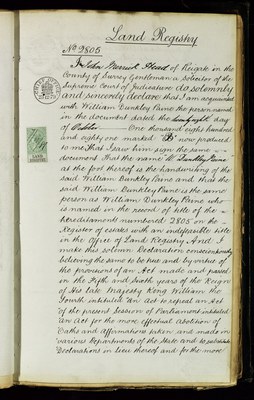 Land Registry
No 2805
I John Merrick Head of Reigate in the
County of Surrey Gentleman a solicitor of the
Supreme Court of Judicature do solemnly
and sincerely declare that I am acquainted
with William Dunkley Paine the person named
in the document dated the twenty eight day
of October One thousand eight hundred
and eighty one marked "B" now produced
to me That I saw him sign the same
document That the name W Dunkley Paine
at the foot thereof is the handwriting of the
said William Dunkley Paine and that the
said William Dunkley Paine is the same
person as William Dunkley Paine who
is named in the record of title of the
hereditament numbered 2805 in the
Register of estates with an indefeasible title
in the Office of Land Registry And I
make this solemn Declaration conscientiously
believing the same to be true and by virtue of
the provisions of an Act made and passed
in the Fifth and Sixth years of the Reign
of His late Majesty King William the
Fourth intituled "An Act to repeal an Act
of the present Session of Parliament intituled
An Act for the more effectual abolition of
Oaths and affirmations taken and made in
various Departments of the State and to substitute
Declarations in lieu thereof and for the more
LAND REGISTRY